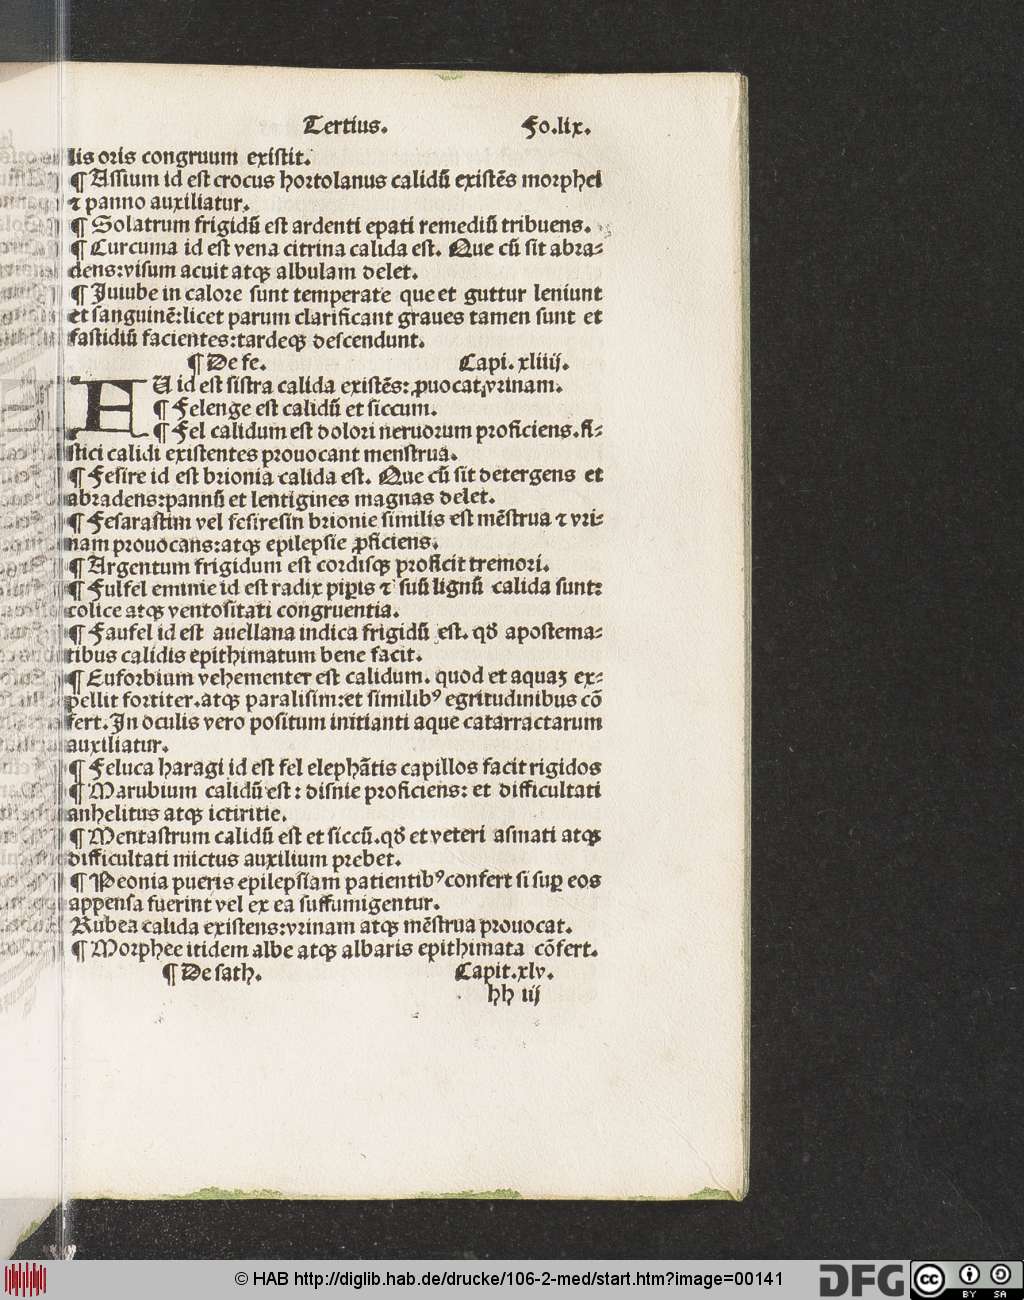 Tertius. Fo.lix.
lis oris congruum existit.
¶ Assium id est crocus hortolanus calidũ existẽs morphei
⁊ panno auxiliatur.
¶ Solatrum frigidũ est ardenti epati remediũ tribuens.
¶ Curcuma id est vena citrina calida est. Que cũ sit abra-
dens:visum acuit atqꝫ albulam delet.
¶ Juiube in calore sunt temperate que et guttur leniunt
et sanguinẽ:licet parum clarificant graues tamen sunt et
fastidiũ facientes:tardeqꝫ descendunt.
¶ De fe. Capi. xliiij.
FU id est sistra calida existẽs: ꝓuocat vrinam.
¶ Felenge est calidũ et siccum.
¶ Fel calidum est dolori neruorum proficiens. fi-
stici calidi existentes prouocant menstrua.
¶ Fesire id est brionia calida est. Que cũ sit detergens et
abradens:pannũ et lentigines magnas delet.
¶ Fesarastim vel fesiresin brionie similis est mẽstrua ⁊ vri-
nam prouocans:atqꝫ epilepsie ꝓficiens.
¶ Argentum frigidum est cordisqꝫ proficit tremori.
¶ Fulfel eminie id est radix piꝑis ⁊ suũ lignũ calida sunt:
colice atqꝫ ventositati congruentia.
¶ Faufel id est auellana indica frigidũ est. qđ apostema-
tibus calidis epithimatum bene facit.
¶ Euforbium vehementer est calidum. quod et aquaꝫ ex-
pellit fortiter. atqꝫ paralisim:et similibꝰ egritudinibus cõ
fert. In oculis vero positum initianti aque catarractarum
auxiliatur.
¶ Feluca haragi id est fel elephãtis capillos facit rigidos
¶ Marubium calidũ est: disnie proficiens: et difficultati
anhelitus atqꝫ ictiritie.
¶ Mentastrum calidũ est et siccũ. qđ et veteri asmati atqꝫ
difficultati mictus auxilium prebet.
¶ Peonia pueris epilepsiam patientibꝰ confert si suꝑ eos
appensa fuerint vel ex ea suffumigentur.
Rubea calida existens:vrinam atqꝫ mẽstrua prouocat.
¶ Morphee itidem albe atqꝫ albaris epithimata cõfert.
¶ De sath. Capit. xlv.
hh iij
© HAB http://diglib.hab.de/drucke/106-2-med/start.htm?image=00141
DFG
cc BY SA